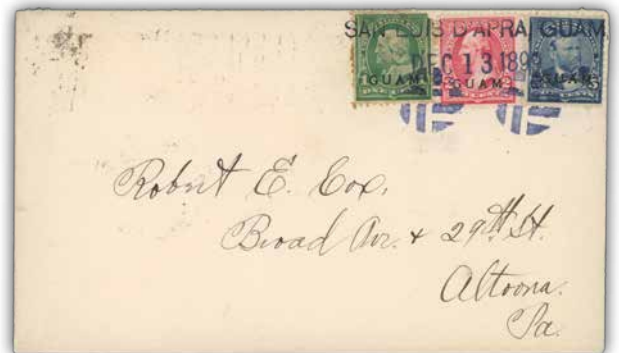 SAN LUIS D'APRA, GUAM
DEC 13 1899
GUAM GUAM GUAM
Robert E. Cox,
Broad Av. + 29th St.
Altoona.
Pa.